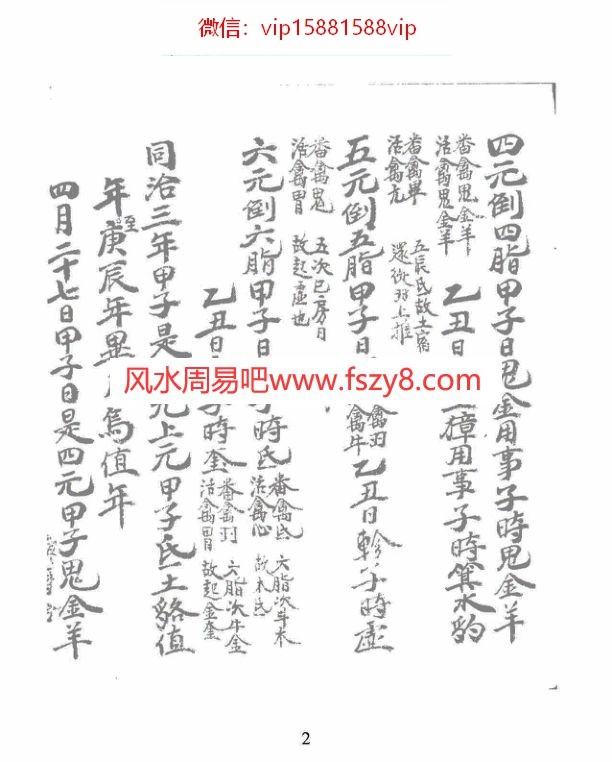 微信：vip15881588vip
四元倒四脂甲子日鬼金用事子時鬼金羊
番禽鬼金羊
活禽鬼金羊
乙丑日 獐用事子時箕水豹
番禽畢
活禽亢
五辰氏故土宿
還從羽上推
五元倒五脂甲子日 禽羽
禽牛
乙丑日軫子時虛
番禽鬼
活禽胃
五次巳房日
故起虛也
六元倒六脂甲子日 時氐
番禽氐
活禽心
六脂次斗木
故木氐
乙丑日 時奎
番禽羽
活禽胃
六脂次牛金
故起金奎
同治三年甲子是 元上元甲子氐土貉值
年至庚辰年畢 烏值年
四月二十七日甲子日是四元甲子鬼金羊
风水周易吧www.fszy8.com
2